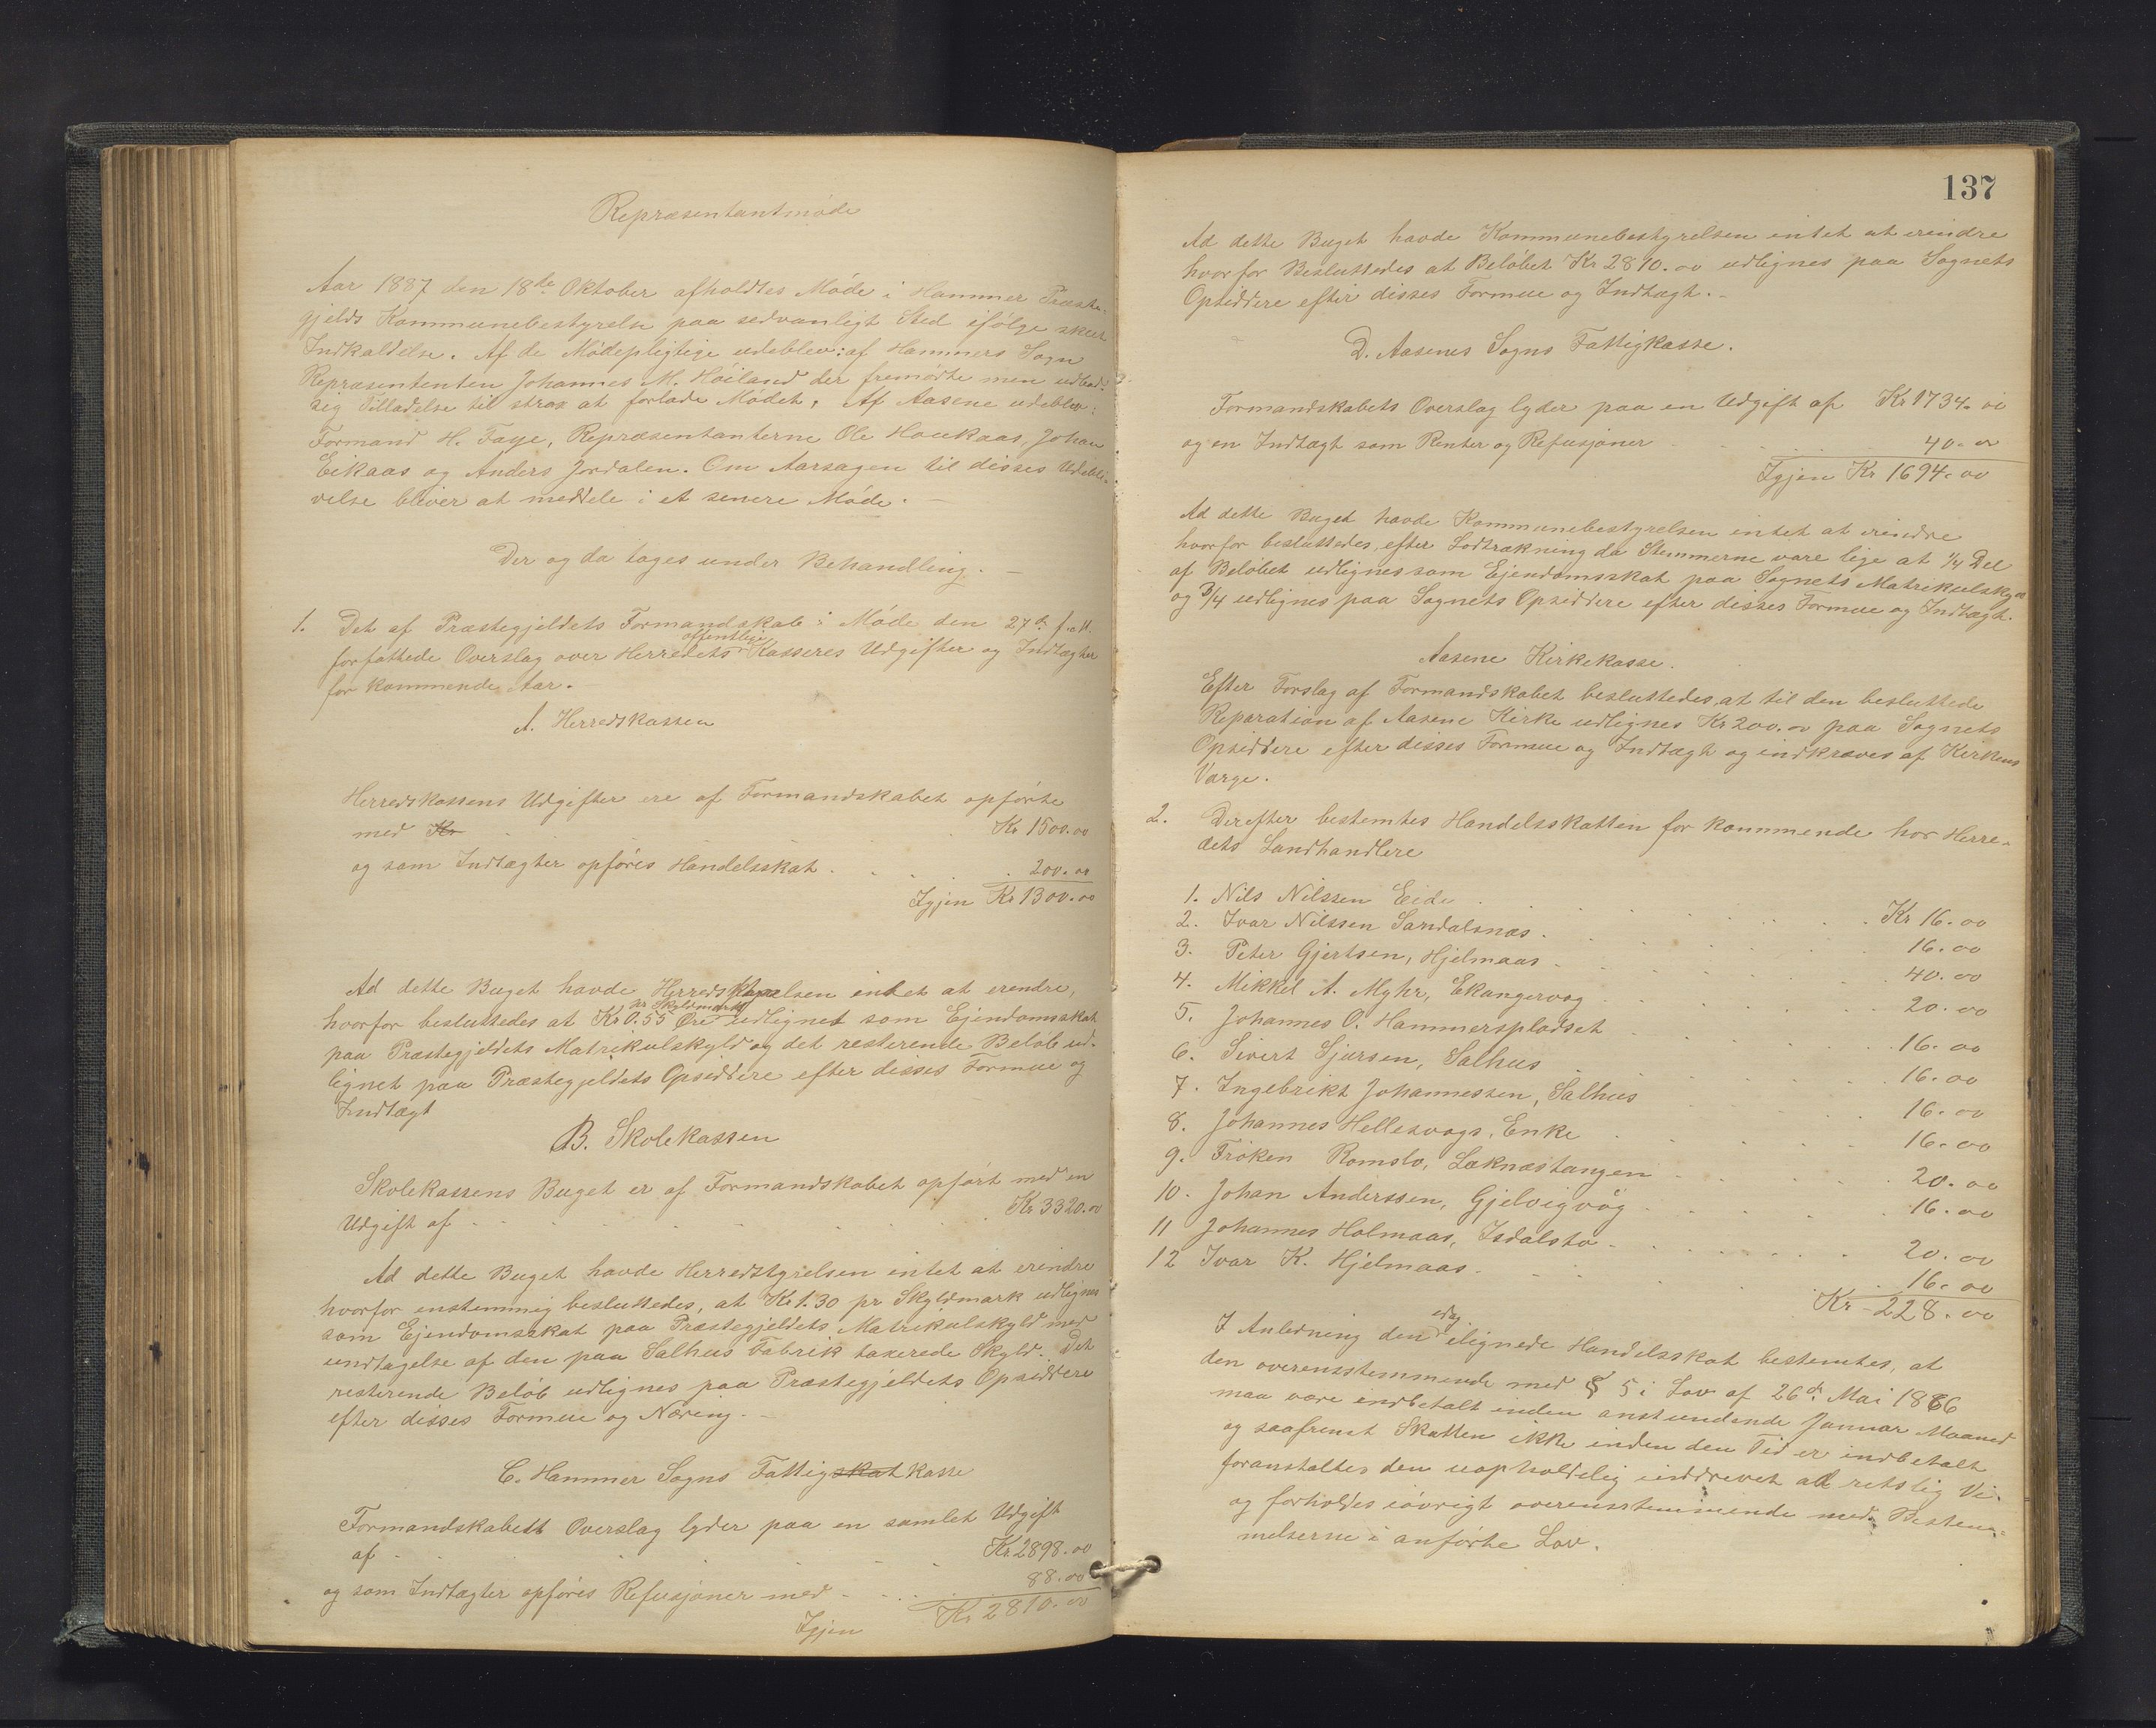 Repræsentantmöde
Aar 1887 den 18de Oktober afholdtes Möde i Hammer Præste-
gjelds Kommunebestyrelse paa sedvanligt Sted ifölge skeet
Indkaldelse. Af de Mödepligtige udeblev: af Hammers Sogn
Repræsententen Johannes M. Höiland der fremödte men udbad
sig Tilladelse til strax at forlade Mödet. Af Aasene udeblev:
Formand H. Faye, Repræsentanterne Ole Houkaas, Johan
Eikaas og Anders Jordalen. Om Aarsagen til disses Udebli-
velse bliver at meddele i et senere Möde. —
Der og da toges under Behandling. —
1. Det af Præstegjeldets Formandskab i Möde den 27de f. M.
forfattede Overslag over Herredets offentlige Kassers Udgifter og Indtægter
for kommende Aar.
A. Herredskassen
Herredskassens Udgifter ere af Formandskabet opförte
med Kr Kr 1500.00
og som Indtægter opföres Handelsskat . . . . . 200.00
Igjen Kr 1300.00
Ad dette Buget havde Herredstyrelsen intet at erendre,
hvorfor besluttedes at Kr 0.55 Öre pr Skyldmark udlignet som Ejendomsskat
paa Præstegjeldets Matrikulskyld og det resterende Belöb ud-
lignet paa Præstegjeldets Opsiddere efter disses Formue og
Indtægt
B. Skolekassen
Skolekassens Buget er af Formandskabet opfört med en
Udgift af Kr 3320.00
Ad dette Buget havde Herredstyrelsen intet at erindre
hvorfor enstemmig besluttedes, at Kr 1.30 pr Skyldmark udlignes
som Ejendomsskat paa Præstegjeldets Matrikulskyld med
undtagelse af den paa Salhus Fabrik taxerede Skyld. Det
resterende Belöb udlignes paa Præstegjeldets Opsiddere
efter disses Formue og Næring. —
C. Hammer Sogns Fattigskat kasse
Formandskabett Overslag lyder paa en samlet Udgift
af Kr. 2898.00
og som Indtægter opföres Refusjoner med 88.00
Igjen Kr 2810.00
137
Ad dette Buget havde Kommunebestyrelsen intet at erindre
hvorfor Besluttedes at Belöbet Kr 2810.00 udlignes paa Sognets
Opsiddere efter disses Formue og Indtægt. —
D. Aasenes Sogns Fattigkasse.
Formandskabets Overslag lyder paa en Udgift af Kr 1734.00
og en Indtægt som Renter og Refusjoner 40.00
Igjen Kr 1694.00
Ad dette Buget havde Kommunebestyrelsen intet at erindre
hvorfor besluttedes, efter Lodtrækning da Stemmerne vare lige at 1/4 Del
af Belöbet udlignes som Ejendomsskat paa Sognets Matrikulskyld
og 3/4 udlignes paa Sognets Opsiddere efter disses Formue og Indtægt.
Aasene Kirkekasse.
Efter Forslag af Formandskabet besluttedes, at til den besluttede
Reparation af Aasene Kirke udlignes Kr 200.00 paa Sognets
Opsiddere efter disses Formue og Indtægt og indkræves af Kirkens
Værge.
2. Derefter bestemtes Handelsskatten for kommende hos Herre-
dets Landhandlere
1. Nils Nilssen Eide Kr 16.00
2. Ivar Nilssen Sandalsnæs 16.00
3. Peter Gjertsen, Hjelmaas 40.00
4. Mikkel A. Myhr, Ekangervog 20.00
5. Johannes O. Hammerspladset 16.00
6. Sivert Sjursen, Salhus 16.00
7. Ingebrikt Johannessen, Salhus 16.00
8. Johannes Hellesvogs. Enke 16.00
9. Fröken Romslo, Læknæstangen 20.00
10. Johan Anderssen, Gjelvigvåg 16.00
11 Johannes Holmaas, Isdalstø 20.00
12 Ivar K. Hjelmaas 16.00
Kr 228.00
I Anledning den idag ilignede Handelsskat bestemtes, at
den overensstemmende med § 5 i Lov af 26de Mai 1866
maa være indbetalt inden anstundende Januar Maaned
og saafremt Skatten ikke inden den Tid er indbetalt
foranstaltes den uopholdelig inddrevet ad retslig Vei.
og forholdes iövrigt overensstemmende med Bestem-
melserne i anförte Lov.